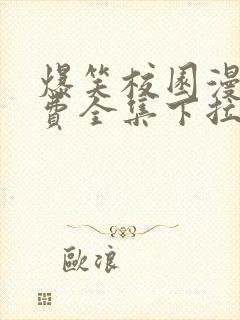 爆笑校园漫
费全集下拉
歐浪